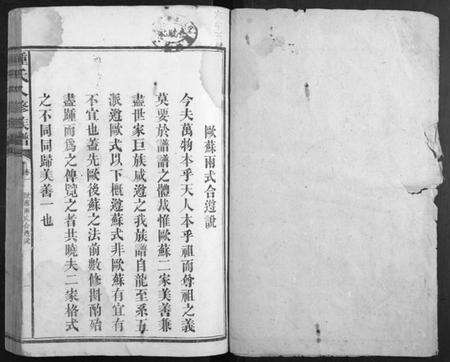 歐蘇兩式合遵說
今夫萬物本乎天人本乎祖而尊祖之義
莫要於譜譜之體裁惟歐蘇二家美善兼
盡世家巨族咸遵之我族譜自龍至系五
派遵歐式以下概遵蘇式非歐蘇有宜有
不宜也蓋先歐後蘇之法前數修斟酌殆
盡踵而為之俾覽之者共曉夫二家格式
之不同同歸美善一也
氏八修族譜